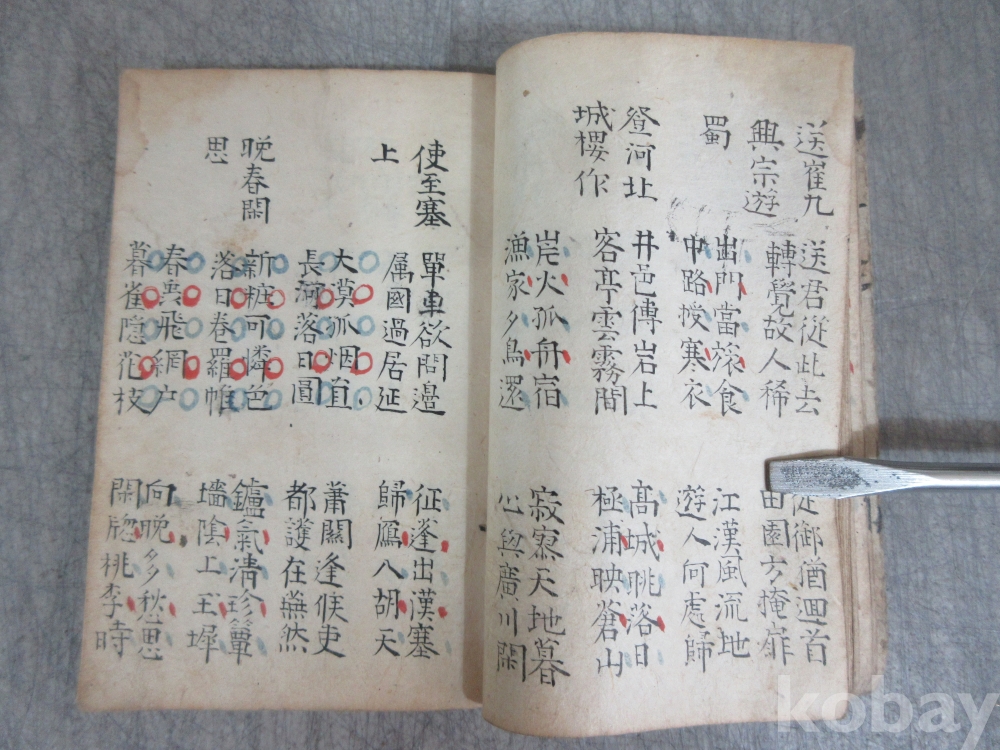 送崔九
興宗遊
蜀
送君從此去
轉覺故人稀
徒御猶迴首
田園方掩扉
出門當旅食
中路授寒衣
江漢風流地
遊人何處歸
登河北
城樓作
井邑傳岩上
客亭雲霧間
高城眺落日
極浦映蒼山
岸火孤舟宿
漁家夕鳥還
寂寥天地暮
心與廣川閑
使至塞
上
單車欲問邊
属國過居延
征蓬出漢塞
歸鴈入胡天
大漠孤烟直
長河落日圓
蕭關逢候吏
都護在燕然
晚春閨
思
新粧可憐色
落日卷羅帷
鑪氣清珍簟
墻陰上玉墀
春虫飛網户
暮雀隱花枝
向晚多愁思
閑牕桃李時
kobay